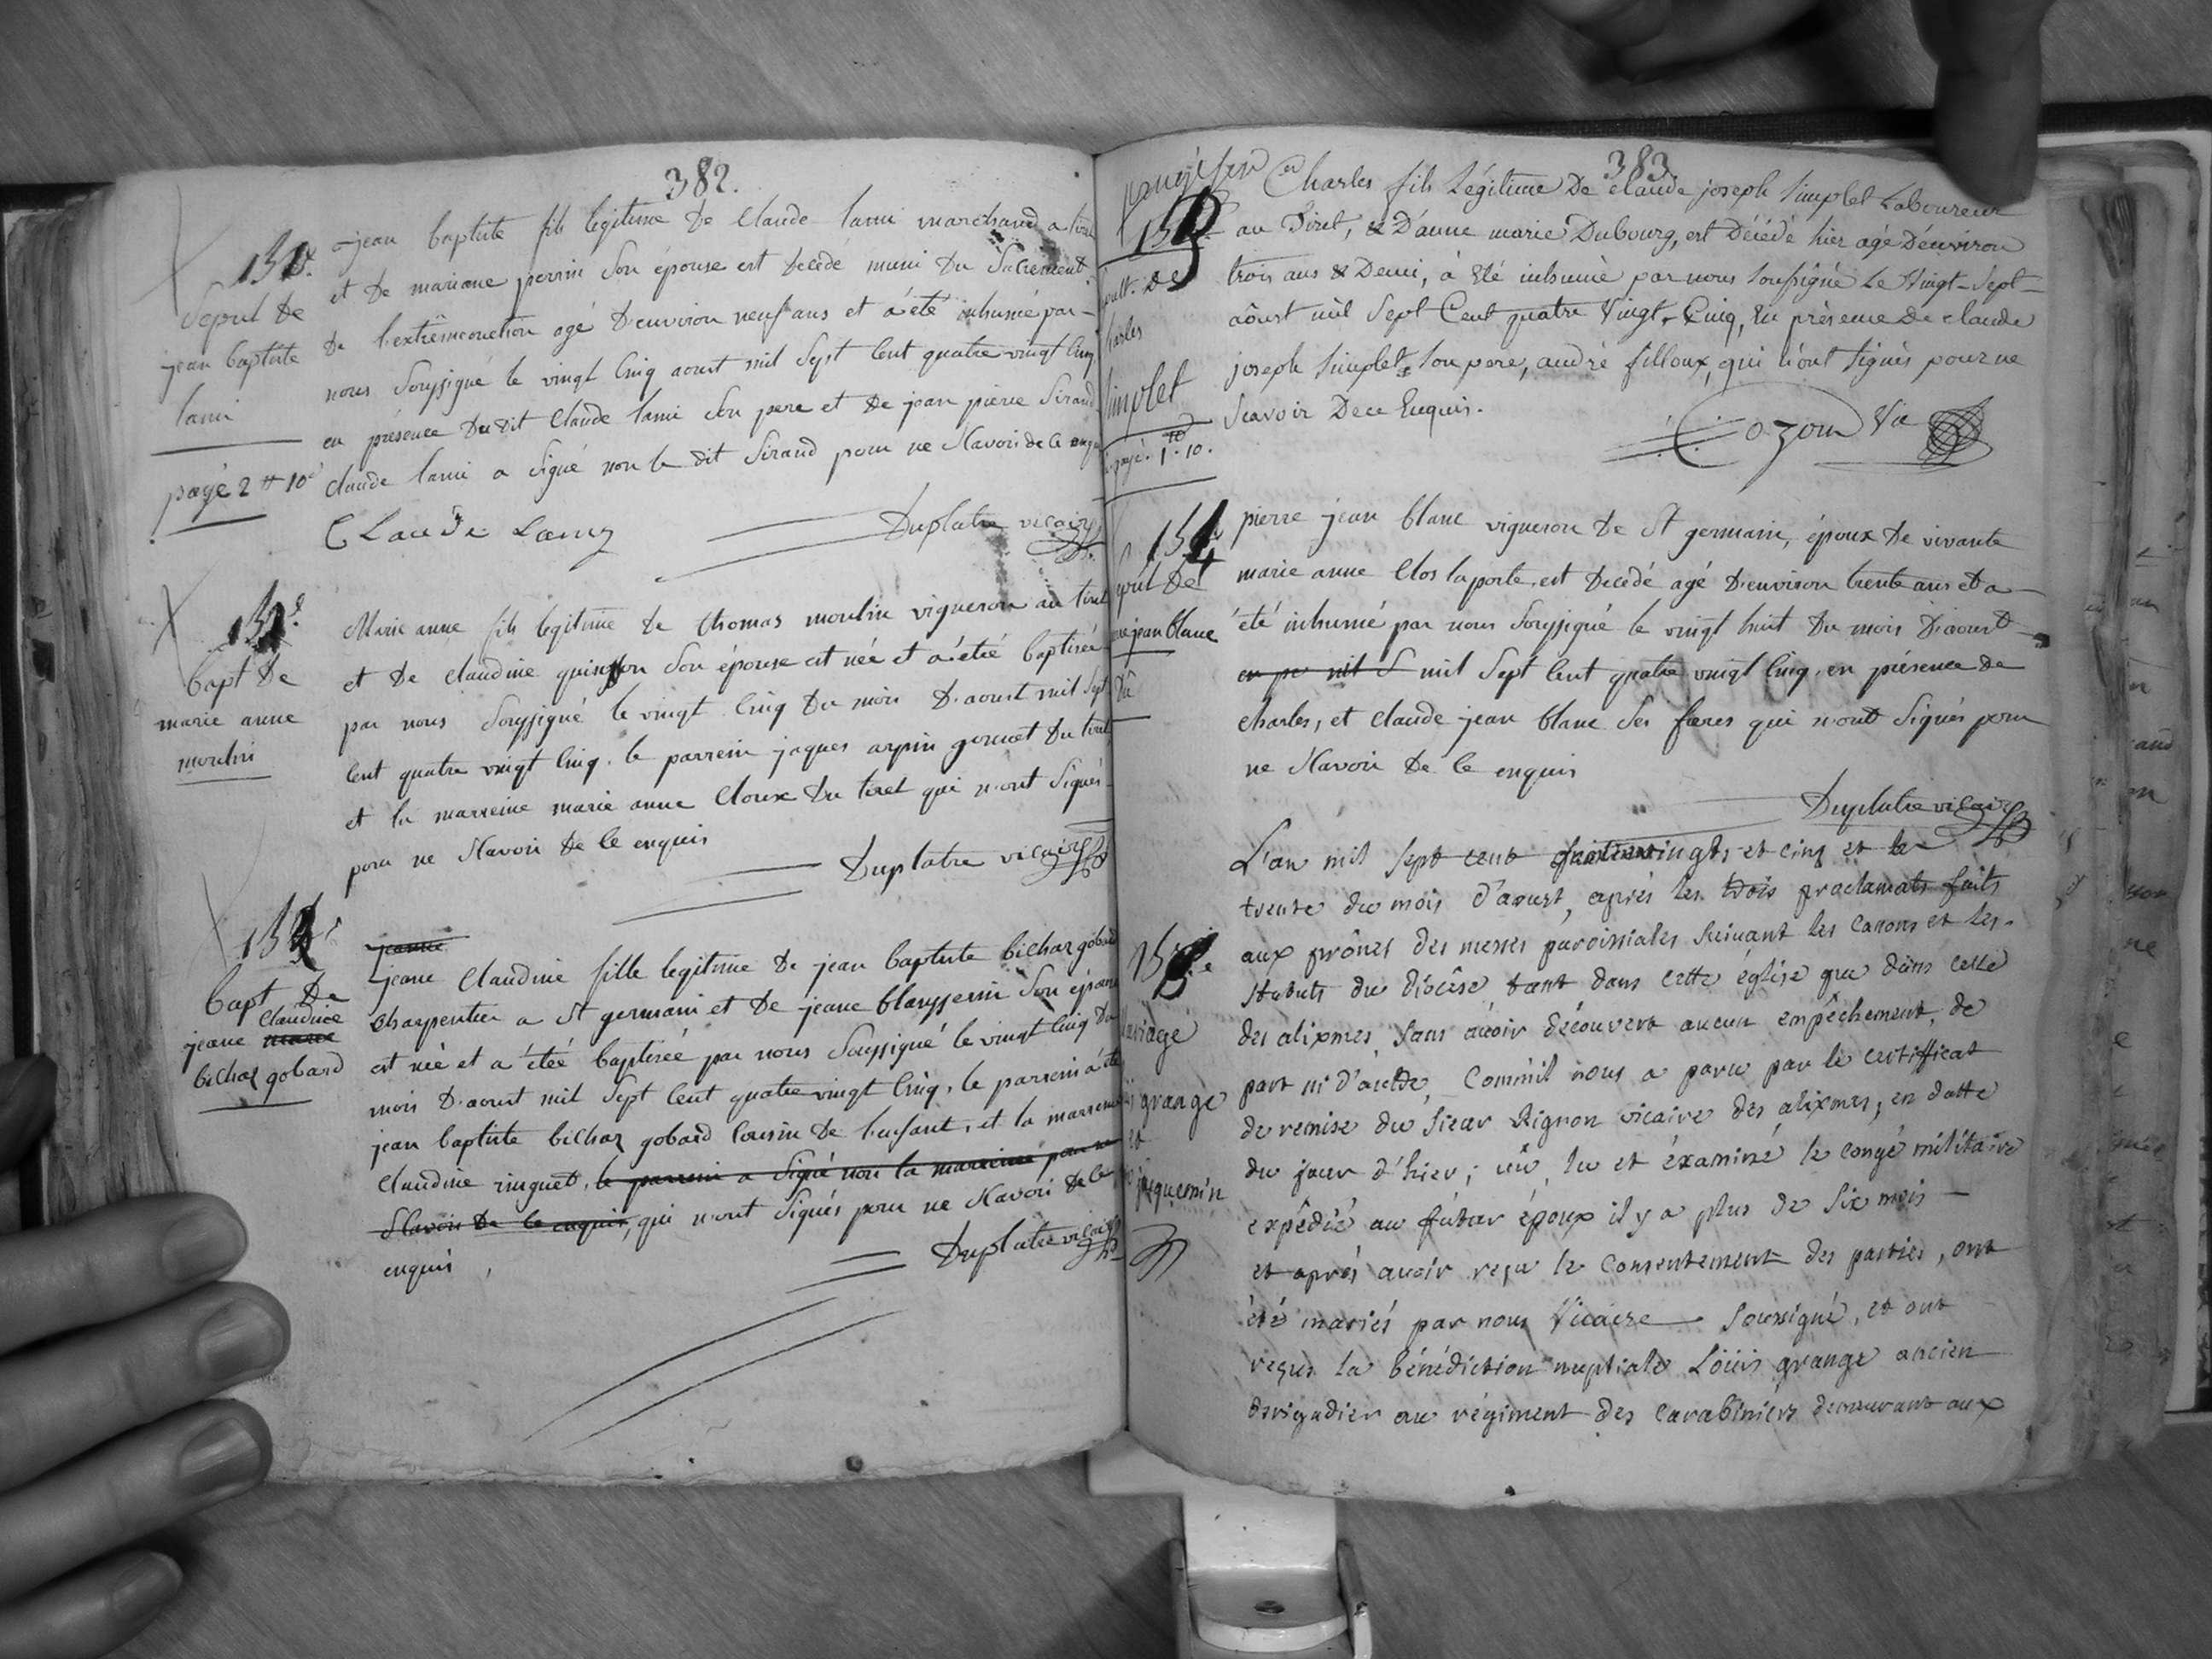 382.
jean baptiste fils legitime de Claude lami marchand a tiret
et de mariane perrin Son épouse est decédé muni du Sacrement
de l'extrêmeonction agé d'environ neuf ans et a été inhumé par
nous Soussigné le vingt Cinq aoust mil Sept Cent quatre vingt Cinq
en présence du dit Claude lami Son pere et de jean pierre Sirand
claude lami a Signé non le dit Sirand pour ne Scavoir de ce enquis
Sepul de
jean baptiste
lami
payé 2 # 10
CLaude Lamy
Duplatre vicaire
Marie anne fils legitime de thomas moulin vigneron au tiret
et de claudine quinsson Son épouse est née et a été baptisée
par nous Soussigné le vingt Cinq du mois d'aoust mil Sept
Cent quatre vingt Cinq. le parrein jaques arpin gourmet du tiret
et la marreine marie anne Cloux du tiret qui n'ont Signés
pour ne Scavoir de Ce enquis
bapt de
marie anne
moulin
Duplatre vicaire
jeanne
jeane Claudine fille legitime de jean baptiste bichaz gobard
Charpentier a St germain et de jeane Son épouse
est née et a étée baptisée par nous Soussigné le vingt Cinq du
mois d'aoust mil Sept Cent quatre vingt Cinq. le parrein a été
jean baptiste bichaz gobard Cousin de l'enfant, et la marreine
Claudine ringuet, le parrein a Signé non la marreine pour ne
Scavoir de Ce enquis, qui n'ont Signés pour ne Scavoir de Ce
enquis
bapt de
Claudine
jeane marie
bichaz gobard
Duplatre vicaire
383
Charles fils Légitime De claude joseph Simplet Laboureur
au Tiret, & D'anne marie Dubourg, est Décédé hier agé D'environ
trois ans & Demi, à Eté inhumé par nous Soussigné Le Vingt-Sept
aôust mil Sept Cent quatre Vingt-Cinq, En présence De claude
joseph Simplet Son pere, andré filloux, qui n'ont Signés pour ne
Scavoir De ce Enquis.
Simplet
payé. 1. 10.
Cozon Vic
pierre jean blanc vigneron de St germain, époux de vivante
marie anne Clos laporte, est decedé agé d'environ trente ans et a
été inhumé par nous Soussigné le vingt huit du mois d'aoust
mil Sept Cent quatre vingt Cinq, en présence de
Charles, et Claude jean blanc Ses freres qui n'ont Signés pour
ne Scavoir de Ce enquis
jean blanc
Duplatre vicaire
L'an mil Sept cent quatrevingts et cinq et le
trente du mois d'aoust, après les trois proclamats faits
aux prônes des messes paroissiales Suivant les canons et les
Statuts du diocèse, tant dans cette église que dans celle
des alixmes, Sans avoir découvert aucun empêchement, de
part ni d'autre, Comm'il nous a paru par le certifficat
de remise du Sieur Rignon vicaire des alixmes, en datte
du jour d'hier; vû, lu et éxaminé le congé militaire
expédié au fûtur époux il y a plus de Six mois
et après avoir reçu le consentement des parties, ont
été mariés par nous Vicaire Soussigné, et ont
reçus la bénédiction nuptiale Loüis grange ancien
brigadier au régiment des carabiniers demeurant aux
mariage
grange
et
jacquemin